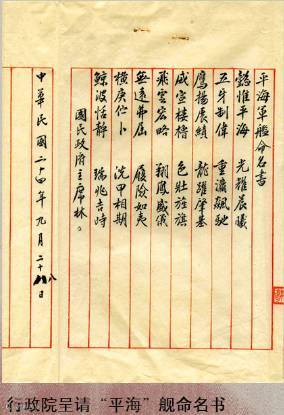 平海軍艦命名書
懿惟平海 光耀晨曦
五牙制偉 重瀛飆馳
鷹揚展績 龍躍肇基
威宣樓櫓 色壯旌旗
飛雲宏略 翔鳳威儀
無遠弗屆 履險如夷
橫庚佇卜 洗甲相期
鯨波恬靜 瑞兆吉時
國民政府主席林。
中華民國二十四年九月二十八日
行政院呈请“平海”舰命名书